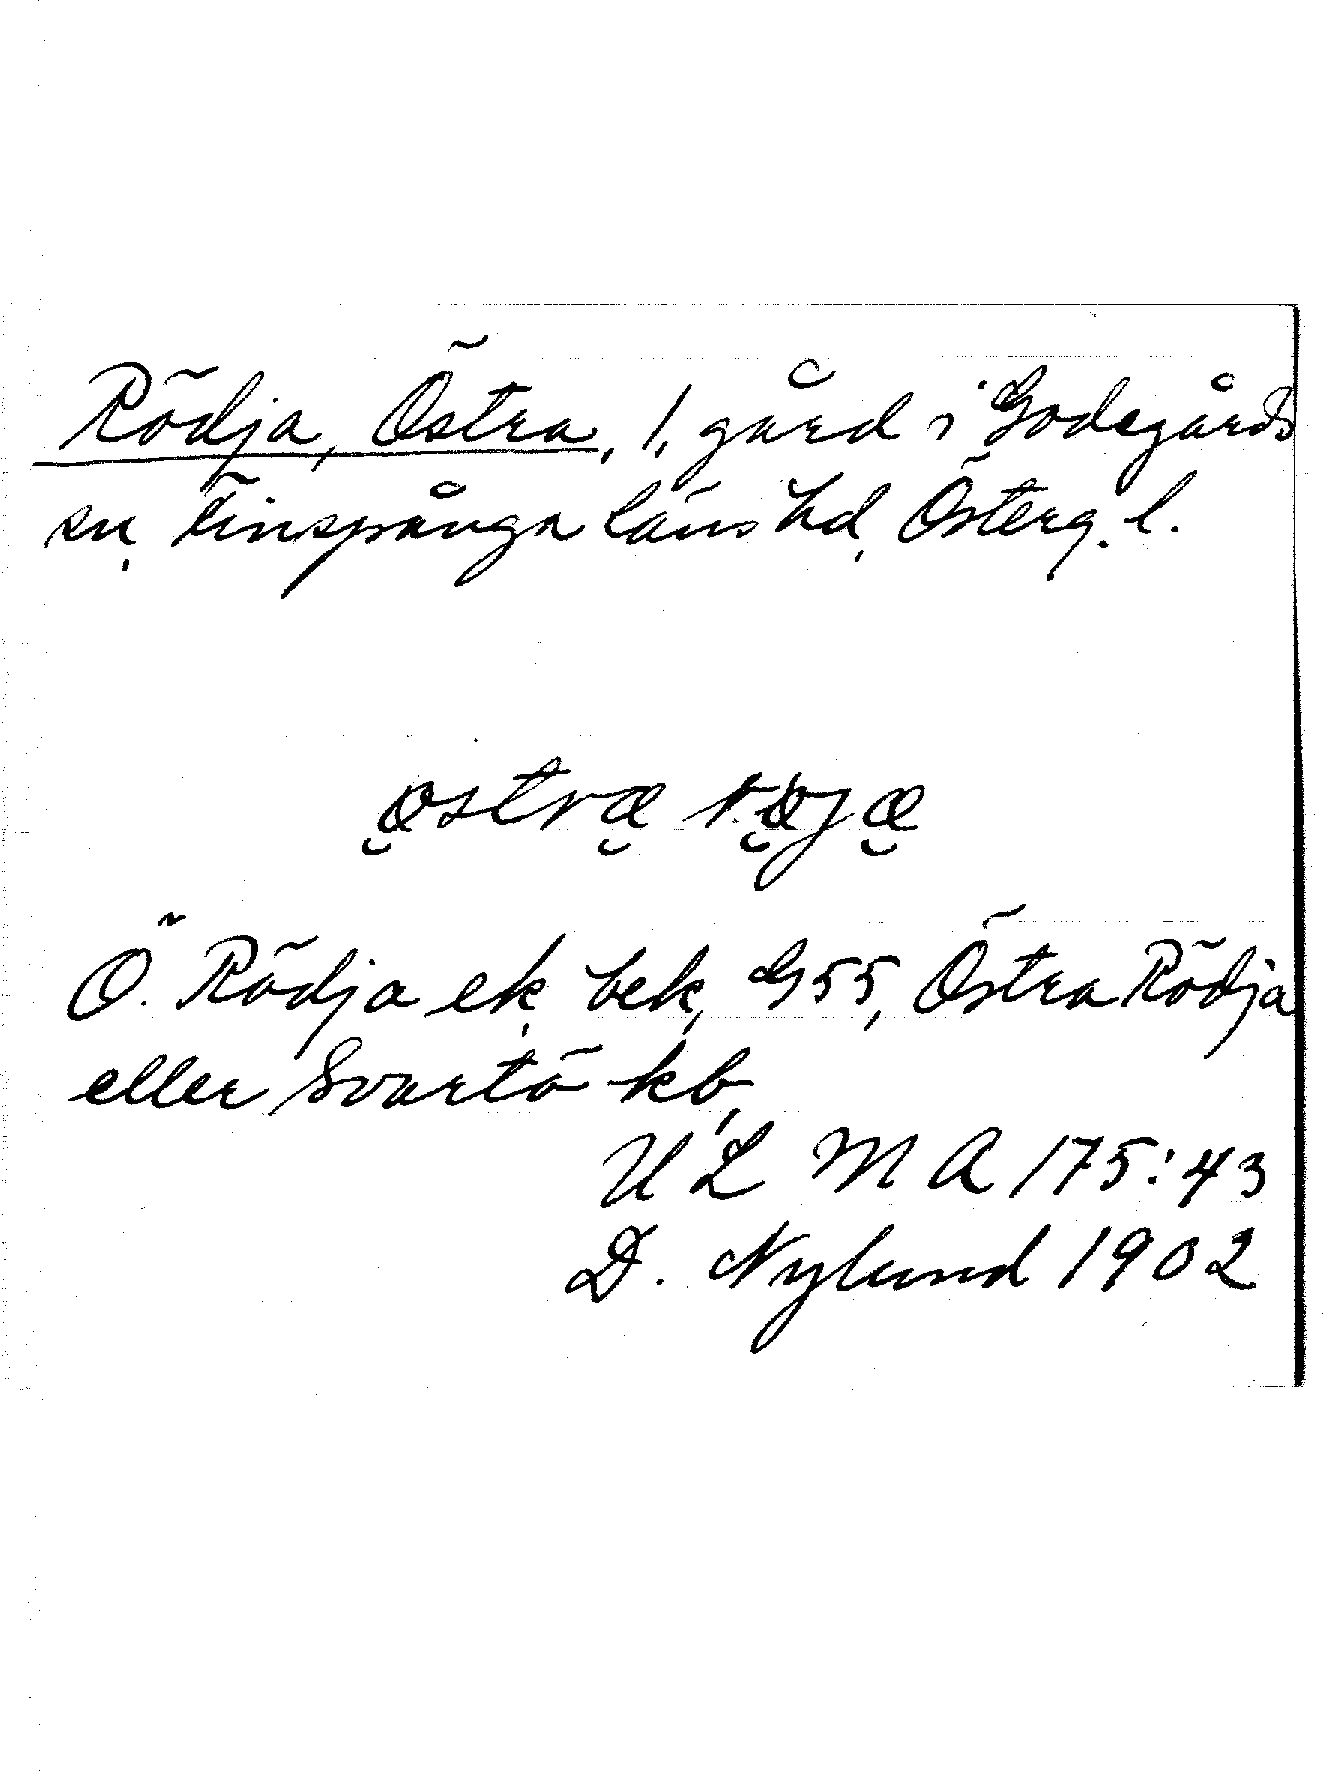 Rödja, Östra, 1, gård i Godegårds
sn, Finspånga läns hd, Österg. l.
østræ røjæ
Ö. Rödja ek, bek, G 55, Östra Rödja
eller Svartö kb,
ULMA 175:43
D. Nylund 1902